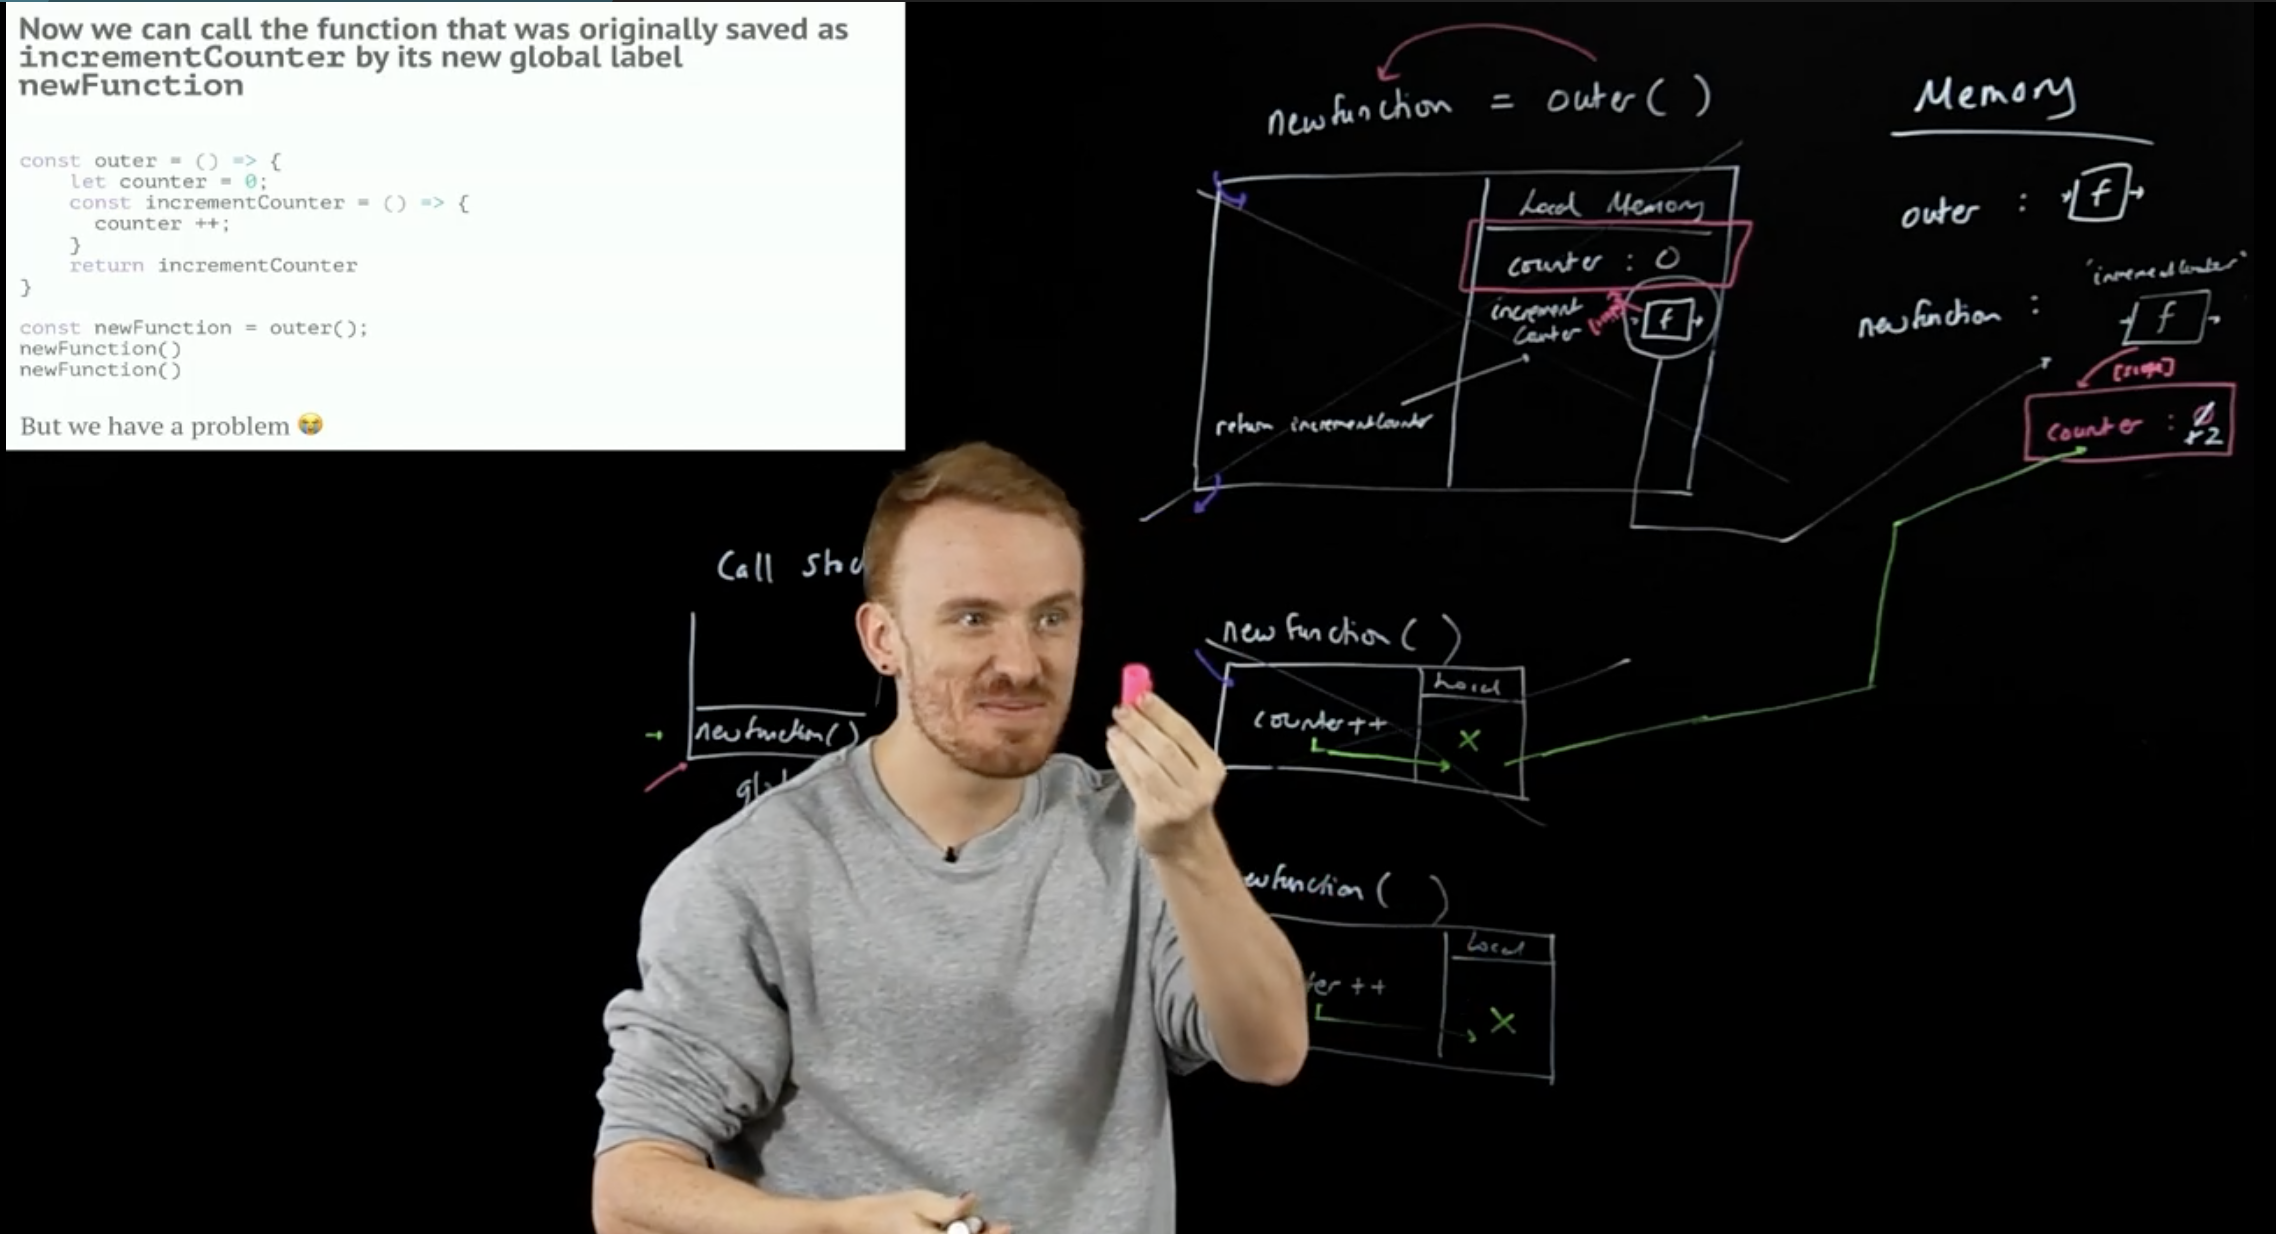 Now we can call the function that was originally saved as
incrementCounter by its new global label
newFunction
const outer = () => {
let counter = 0;
const incrementCounter = () => {
counter ++;
}
return incrementCounter
}
const newFunction = outer();
newFunction()
newFunction()
But we have a problem 😭
newfunction = outer( )
Local Memory
counter : 0
increment
Counter
f
return incrementCounter
Memory
outer : f
"incrementCounter"
newfunction : f
[scope]
counter : 2
Call
newfunction()
newfunction( )
Local
counter++
X
ewfunction( )
Local
ter ++
X